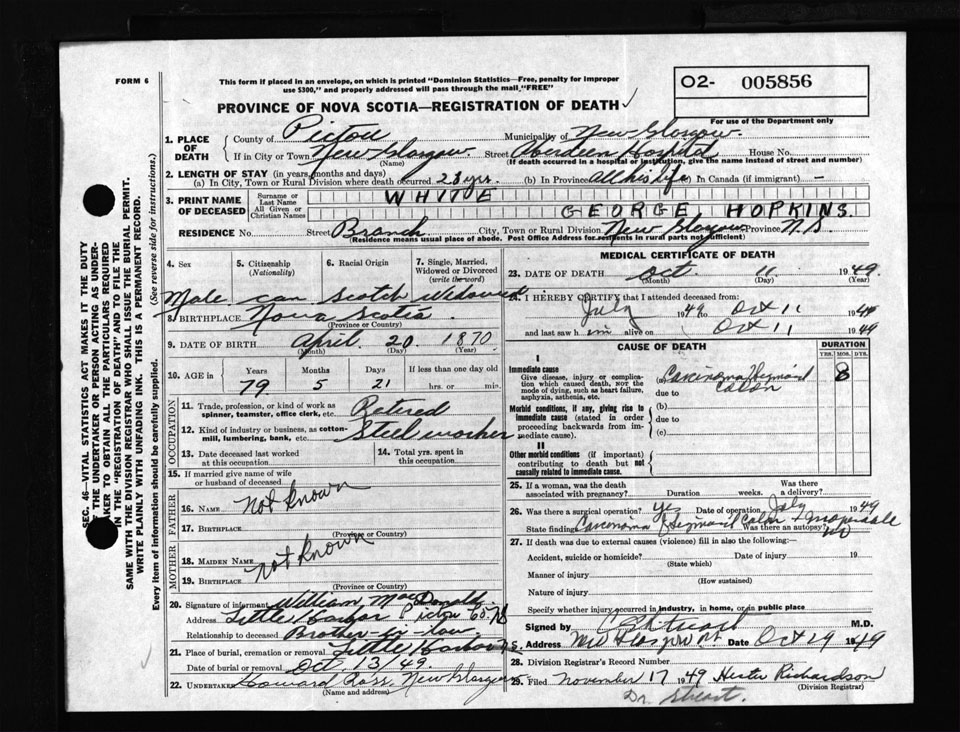 FORM 6
This form if placed in an envelope, on which is printed "Dominion Statistics—Free, penalty for improper
use $300," and properly addressed will pass through the mail "FREE"
O2- 005856
PROVINCE OF NOVA SCOTIA—REGISTRATION OF DEATH ✓
For use of the Department only
1. PLACE OF DEATH County of Pictou Municipality of New Glasgow
If in City or Town New Glasgow Street Aberdeen Hospital House No.
(Name) (If death occurred in hospital or institution, give the name instead of street and number)
2. LENGTH OF STAY (in years, months and days)
(a) In City, Town or Rural Division where death occurred 28 yrs. (b) In Province All his life (c) In Canada (if immigrant) —
3. PRINT NAME OF DECEASED Surname or Last Name WHITE
All Given or Christian Names GEORGE, HOPKINS
RESIDENCE No. Street Branch City, Town or Rural Division New Glasgow Province N.S.
(Residence means usual place of abode. Post Office Address for residents in rural parts not sufficient)
4. Sex 5. Citizenship (Nationality) 6. Racial Origin 7. Single, Married, Widowed or Divorced (write the word)
Male Can Scotch Widowed
8. BIRTHPLACE Nova Scotia
(Province or Country)
9. DATE OF BIRTH April 20 1870
(Month) (Day) (Year)
10. AGE in Years Months Days If less than one day old
79 5 21 hrs. or min.
OCCUPATION
11. Trade, profession, or kind of work as spinner, teamster, office clerk, etc. Retired
12. Kind of industry or business, as cotton-mill, lumbering, bank, etc. Steel worker
13. Date deceased last worked at this occupation
14. Total yrs. spent in this occupation
15. If married give name of wife or husband of deceased
FATHER
16. NAME Not Known
17. BIRTHPLACE
(Province or Country)
MOTHER
18. MAIDEN NAME Not Known
19. BIRTHPLACE
(Province or Country)
20. Signature of informant William MacDonald
Address Little Harbor Pictou Co. N.S.
Relationship to deceased Brother-in-law
21. Place of burial, cremation or removal Little Harbor N.S.
Date of burial or removal Oct. 13/49.
22. Undertaker Howard Ross, New Glasgow
(Name and address)
MEDICAL CERTIFICATE OF DEATH
23. DATE OF DEATH Oct 11 1949
(Month) (Day) (Year)
24. I HEREBY CERTIFY that I attended deceased from:
July 1949 to Oct 11 1949
and last saw him alive on Oct 11 1949
CAUSE OF DEATH DURATION
YRS. MOS. DYS.
I
Immediate cause
Give disease, injury or complication which caused death, nor the mode of dying, such as heart failure, asphyxia, asthenia, etc.
(a) Carcinoma Sigmoid Colon 8
due to
Morbid conditions, if any, giving rise to immediate cause (stated in order proceeding backwards from immediate cause).
(b)
due to
(c)
II
Other morbid conditions (if important) contributing to death but not causally related to immediate cause.
25. If a woman, was the death associated with pregnancy? Duration weeks. Was there a delivery?
26. Was there surgical operation? Yes Date of operation July 1949
State findings Carcinoma of Sigmoid Colon + Inoperable Was there an autopsy? No
27. If death was due to external causes (violence) fill in also the following:—
Accident, suicide or homicide? Date of injury 19
(State which)
Manner of injury
(How sustained)
Nature of injury
Specify whether injury occurred in industry, in home, or in public place
Signed by Stuart M.D.
Address New Glasgow Date Oct 19 1949
28. Division Registrar's Record Number
29. Filed November 17 1949 Hester Richardson
(Division Registrar)
Dr. Stuart.
SEC. 46—VITAL STATISTICS ACT MAKES IT THE DUTY
OF THE UNDERTAKER OR PERSON ACTING AS UNDER-
TAKER TO OBTAIN ALL THE PARTICULARS REQUIRED
IN THE "REGISTRATION OF DEATH" AND TO FILE THE
SAME WITH THE DIVISION REGISTRAR WHO SHALL ISSUE THE BURIAL PERMIT.
WRITE PLAINLY WITH UNFADING INK. THIS IS A PERMANENT RECORD.
Every item of information should be carefully supplied. (See reverse side for instructions.)